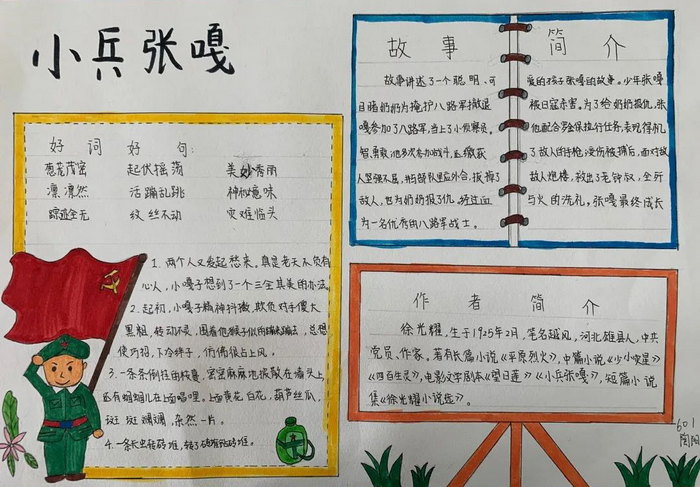 小兵张嘎
好词好句:
葱茏茂密 起伏摇荡 美妙秀丽
凛凛然 活蹦乱跳 神秘意味
踪迹全无 纹丝不动 灾难临头
1、两个人又发起愁来。真是老天不负有
心人,小嘎子想到了一个三全其美的办法。
2.起初,小嘎子精神抖擞,欺负对手傻大
黑粗,转动不灵,围着他猴子似的蹦来蹦去,总想
使巧招,下冷绊子,仿佛很占上风,
3、一条条倒挂的枝蔓,密密麻麻地披散在墙头上
还有蝈蝈儿在上面唱哩。上面黄花,白花,葫芦丝瓜,
斑斑斓斓,杂然一片。
故事简介
故事讲述了一个聪明、可
爱的孩子张嘎的故事。少年张嘎
目睹奶奶为掩护八路军撤退
被日寇杀害。为了给奶奶报仇,张
嘎参加了八路军,当上了小侦察员。
他配合罗金保执行任务,表现得机
智、勇敢,他多次参加战斗,
了敌人的手枪,受伤被捕后,面对敌
人坚强不屈,
人炮楼,救出了老钟叔,
敌人,也为奶奶报了仇。经过血
与火的洗礼,张嘎最终成长
为一名优秀的八路军战士。
作者简介
徐光耀,生于1925年2月,笔名越风,河北雄县人,中共
党员,作家。著有长篇小说《平原烈火》,中篇小说《少小灾星》
《四百生灵》,电影文学剧本《望日莲》《小兵张嘎》,短篇小说
集《徐光耀小说选》。
601